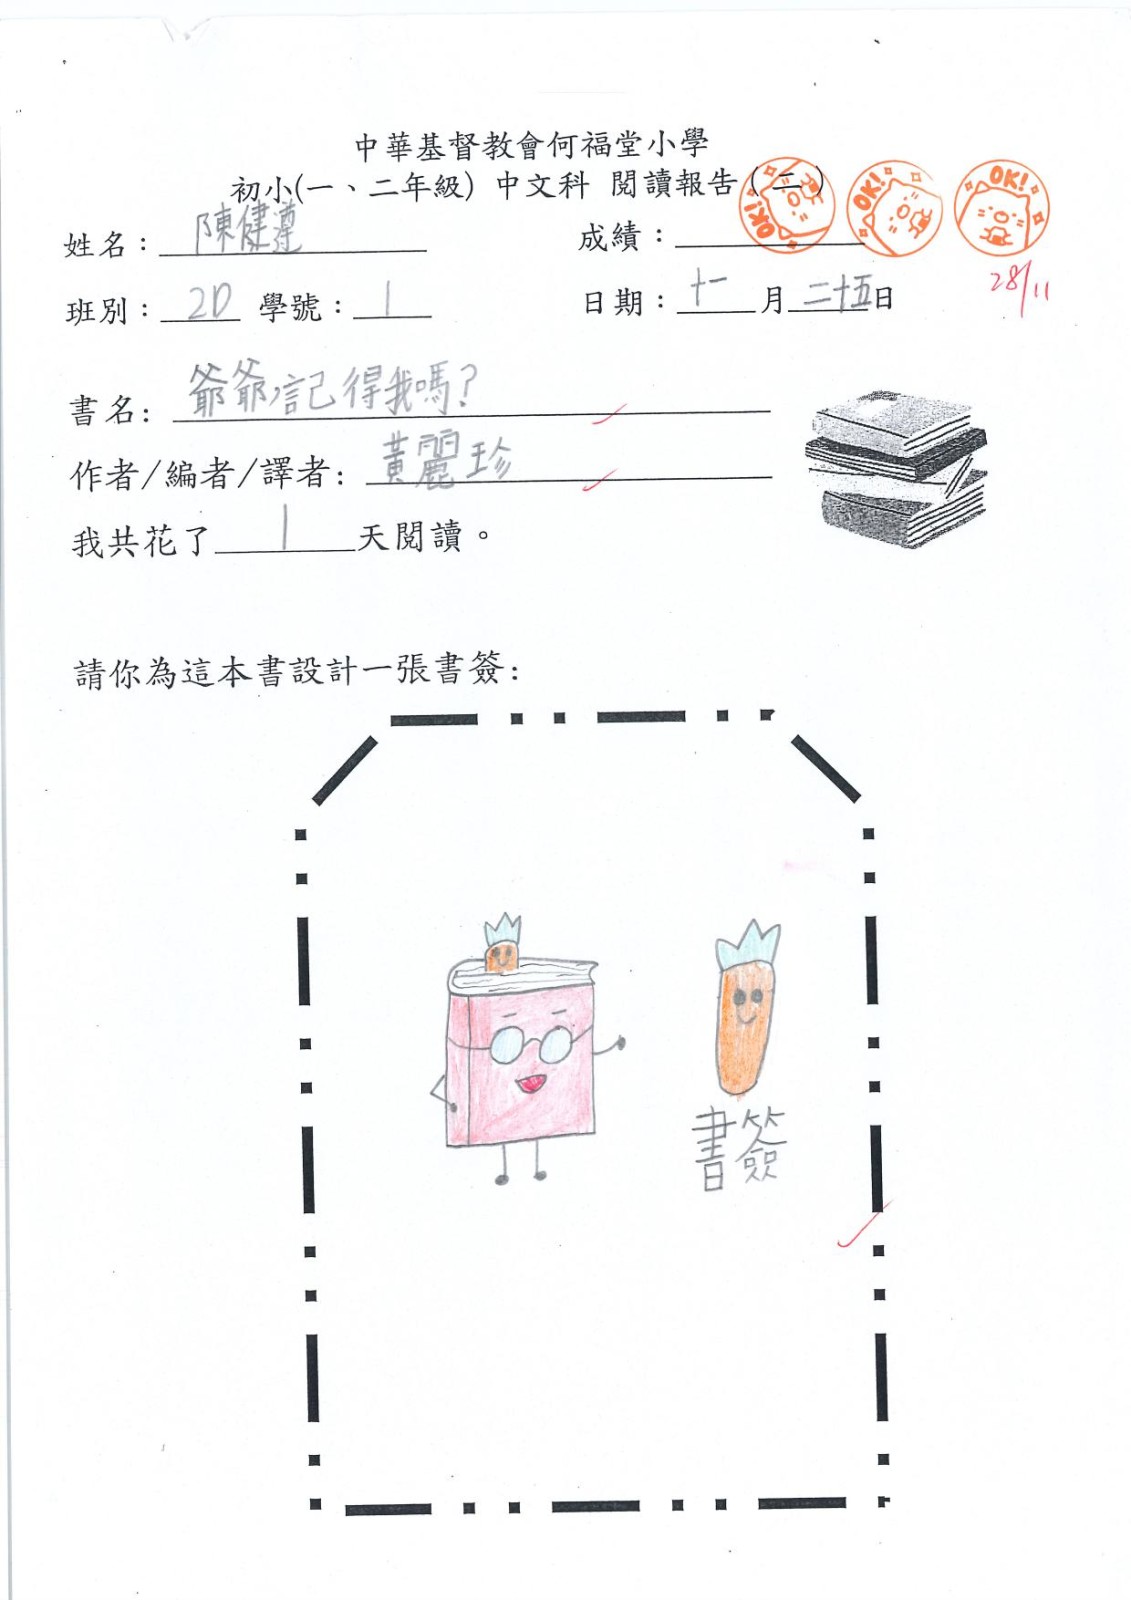 中華基督教會何福堂小學
初小(一、二年級) 中文科 閱讀報告(二)
OK! OK! OK!
姓名：陳健遵 成績：
28/11
班別：2D 學號：1 日期：十一月二十五日
書名: 爺爺,記得我嗎?
作者/編者/譯者: 黃麗珍
我共花了1天閱讀。
請你為這本書設計一張書簽:
書簽